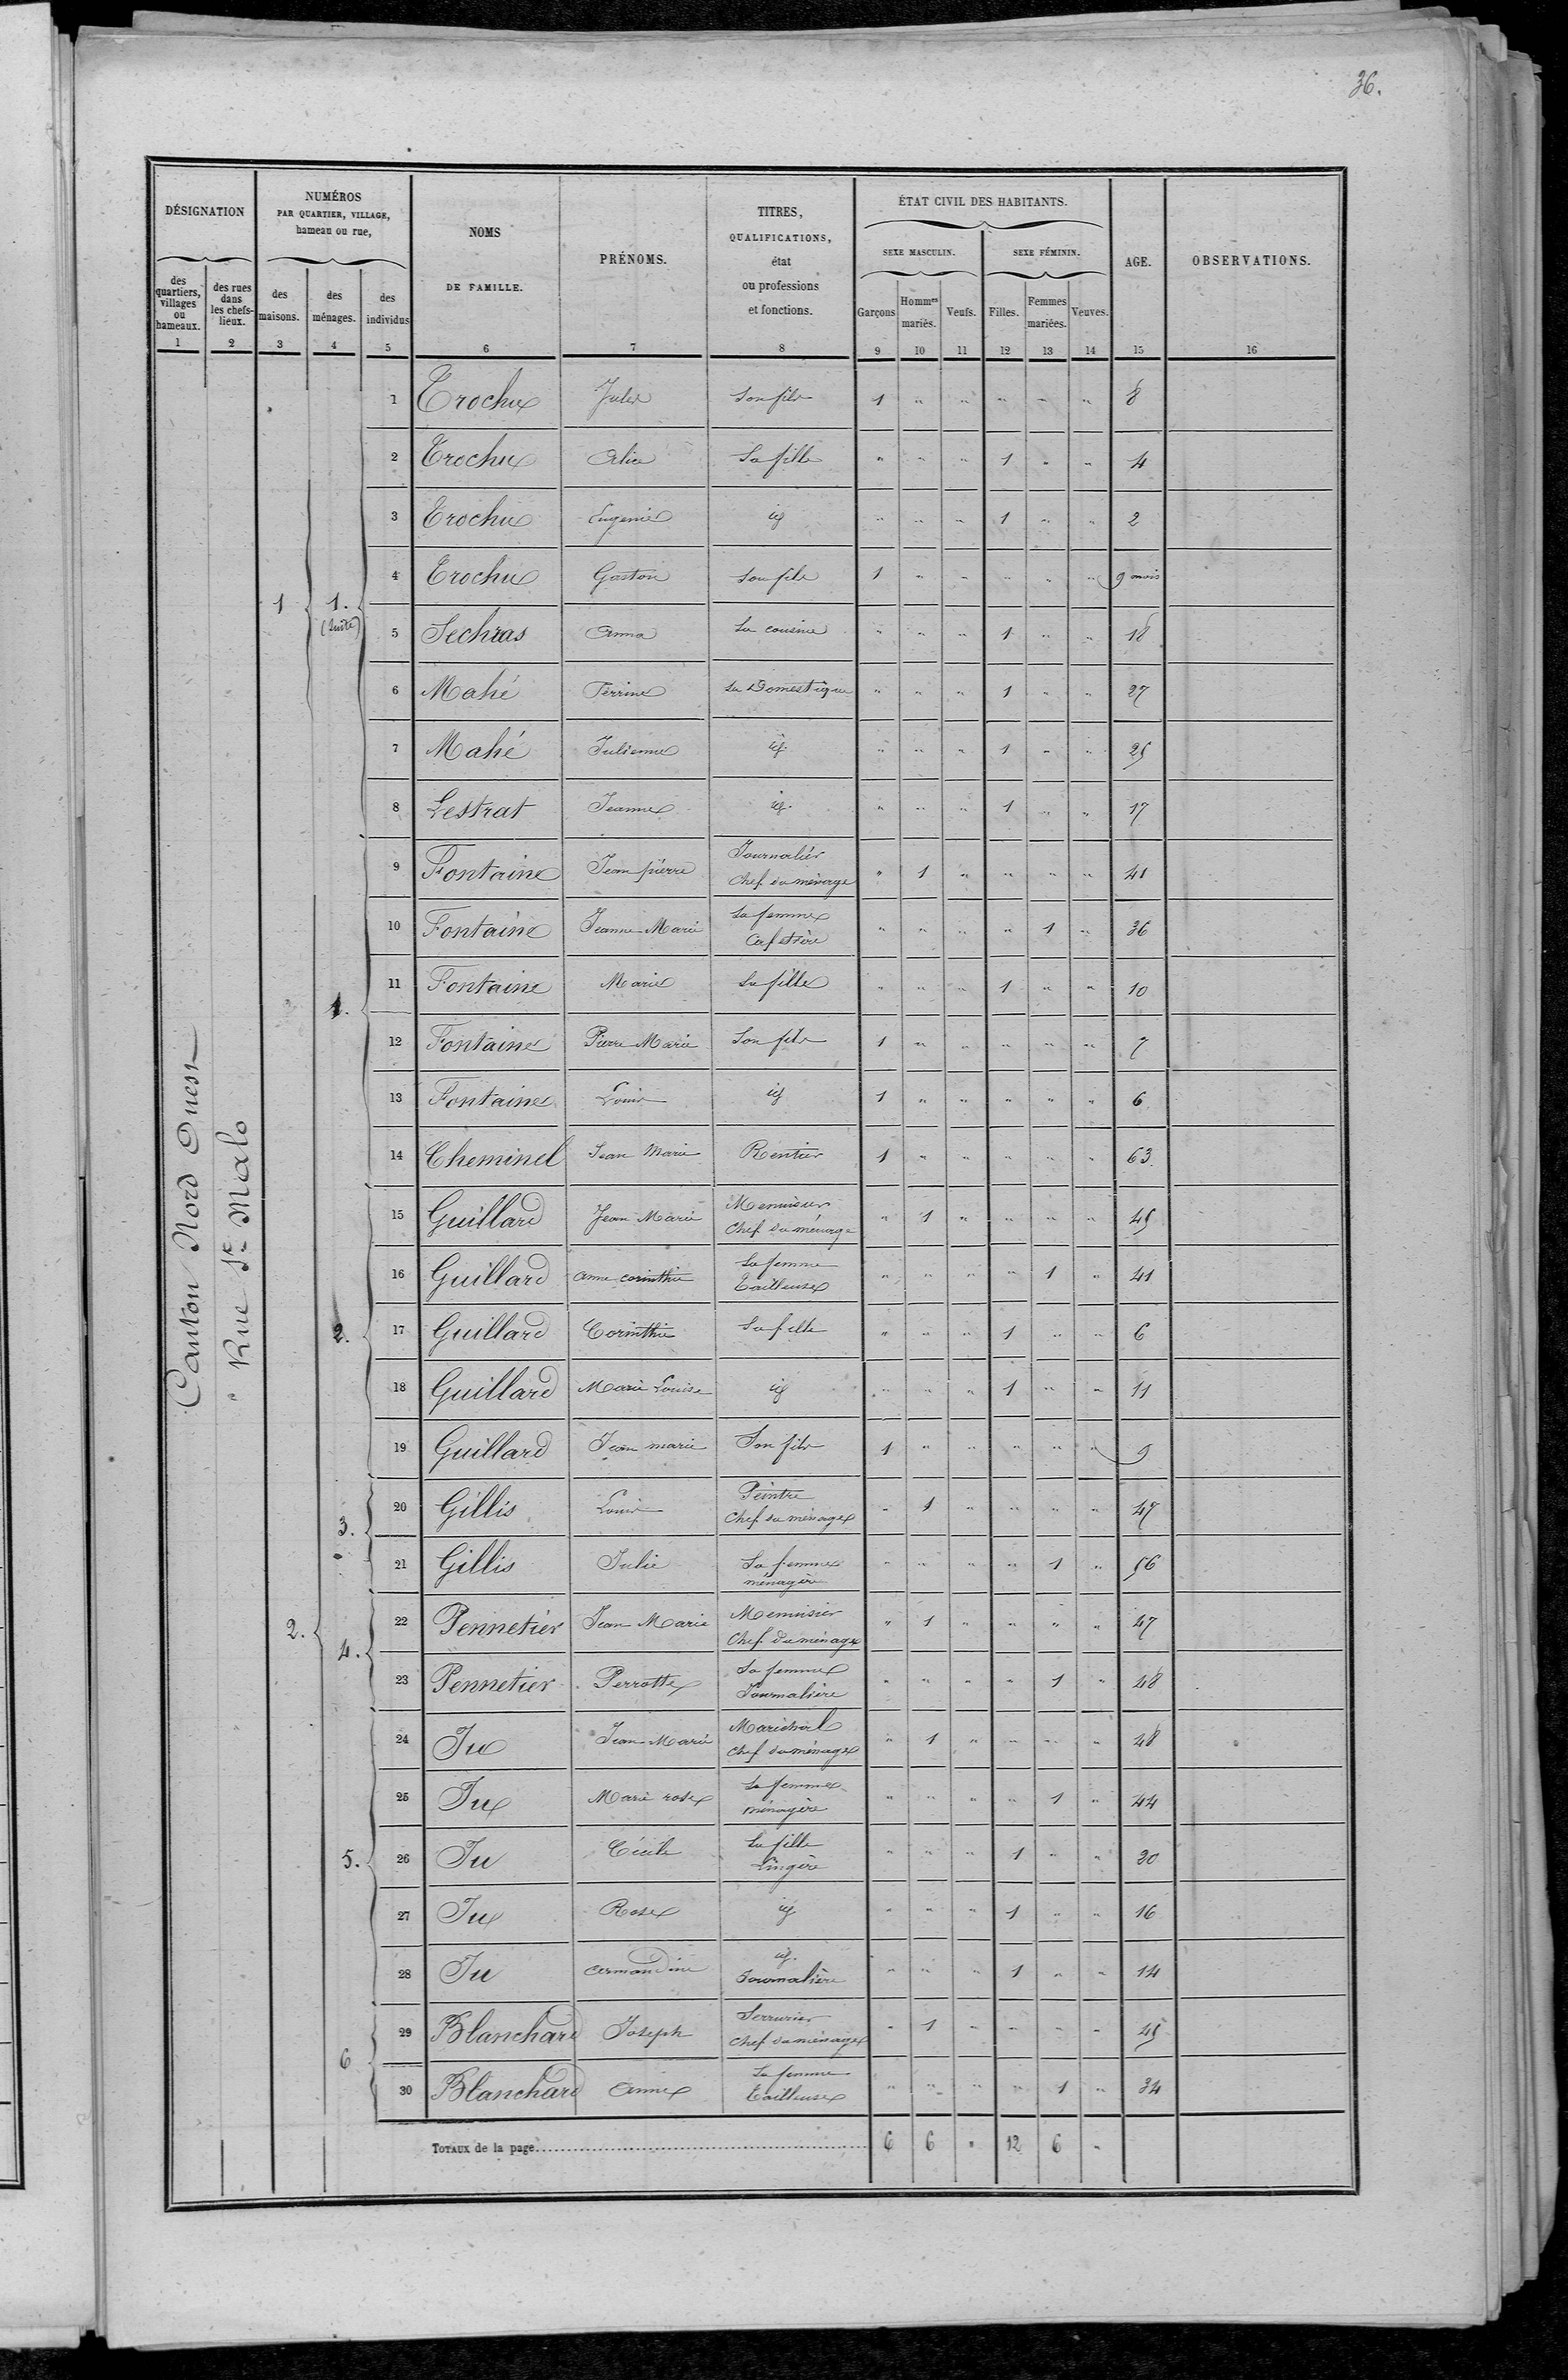 36.
DÉSIGNATION
NUMÉROS
PAR QUARTIER, VILLAGE,
hameau ou rue,
NOMS
DE FAMILLE.
PRÉNOMS.
TITRES,
QUALIFICATIONS,
état
ou professions
et fonctions.
ÉTAT CIVIL DES HABITANTS.
SEXE MASCULIN.
SEXE FÉMININ.
AGE.
OBSERVATIONS.
des quartiers, villages ou hameaux.
des rues dans les chefs-lieux.
des maisons.
des ménages.
des individus
Garçons
Hommes mariés.
Veufs.
Filles.
Femmes mariées.
Veuves.
1 2 3 4 5 6 7 8 9 10 11 12 13 14 15 16
Canton Nord Ouest
" Rue St Malo
1 1. (Suite)
1 Trochu Jules Son fils 1 " " " " " 8
2 Trochu Alice Sa fille " " " 1 " " 4
3 Trochu Eugenie id " " " 1 " " 2
4 Trochu Gaston Son fils 1 " " " " " 9 mois
5 Sechras Anna Sa cousine " " " 1 " " 18
6 Mahé Perrine Sa Domestique " " " 1 " " 27
7 Mahé Julienne id. " " " 1 " " 25
8 Lestrat Jeanne id. " " " 1 " " 17
1.
9 Fontaine Jean pierre Journalier Chef du ménage " 1 " " " " 41
10 Fontaine Jeanne Marie Sa femme Cafetière " " " " 1 " 36
11 Fontaine Marie Sa fille " " " 1 " " 10
12 Fontaine Pierre Marie Son fils 1 " " " " " 7
13 Fontaine Louis id 1 " " " " " 6
14 Cheminel Jean Marie Rentier 1 " " " " " 63.
2.
15 Guillard Jean Marie Menuisier Chef du ménage " 1 " " " " 45
16 Guillard anne corinthie Sa femme Tailleuse " " " " 1 " 41
17 Guillard Corinthie Sa fille " " " 1 " " 6
18 Guillard Marie Louise id " " " 1 " " 11
19 Guillard Jean marie Son fils 1 " " " " " 9
3.
20 Gillis Louis Peintre Chef du ménage " 1 " " " " 47
21 Gillis Julie Sa femme ménagère " " " " 1 " 56
2. 4.
22 Pennetier Jean Marie Menuisier Chef du ménage " 1 " " " " 47
23 Pennetier Perrotte Sa femme Journalière " " " " 1 " 48
5.
24 Ju Jean Marie Maréchal Chef du ménage " 1 " " " " 48
25 Ju Marie rose Sa femme ménagère " " " " 1 " 44
26 Ju Cécile Sa fille Lingère " " " 1 " " 20
27 Ju Rose id " " " 1 " " 16
28 Ju armandine id. Journalière " " " 1 " " 14
6
29 Blanchard Joseph Serrurier Chef du ménage " 1 " " " " 45
30 Blanchard Anne Sa femme Tailleuse " " " " 1 " 34
TOTAUX de la page 6 6 " 12 6 "